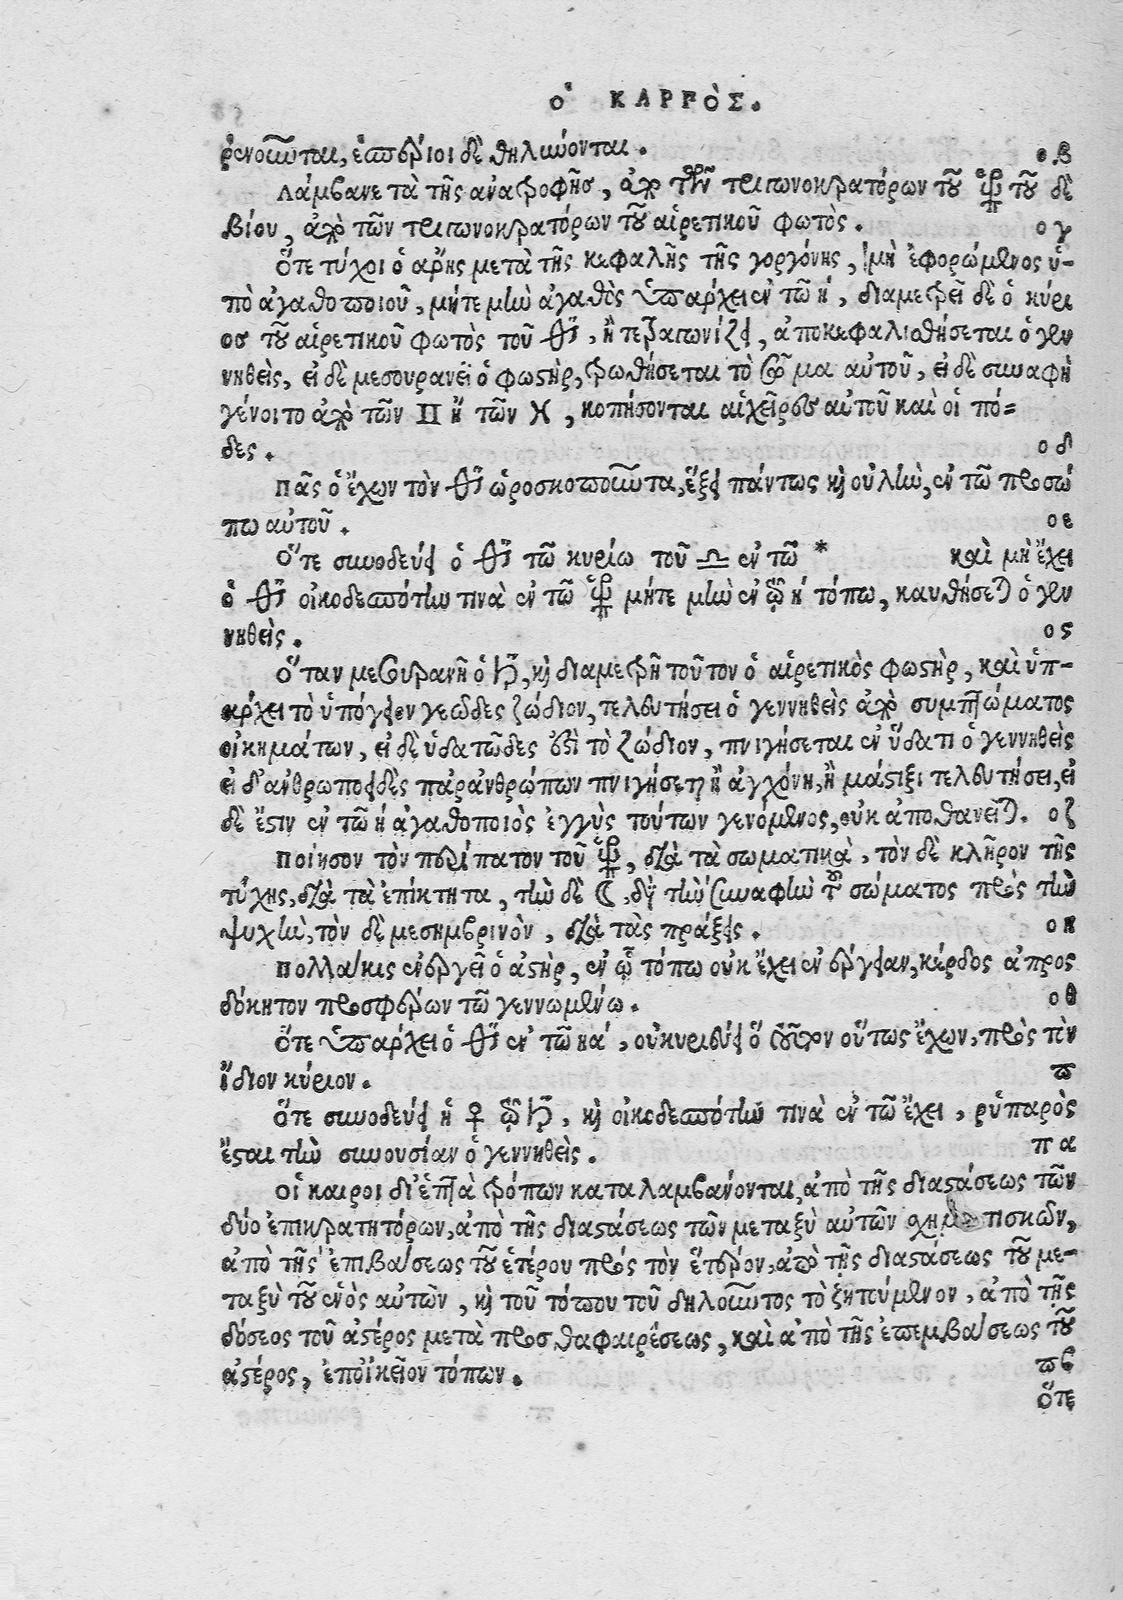 ὁ ΚΑΡΠΟΣ.
ῥενοῦνται, ἑσπέριοι δὲ θηλυώονται. οβ
Λάμβανε τὰ τῆς ἀνατροφῆς, ἀπὸ τῶν τριγωνοκρατόρων τοῦ τοῦ δὲ
βίου, ἀπὸ τῶν τριγωνοκρατόρων τοῦ αἱρετικοῦ φωτὸς. ογ
Ὅτε τύχοι ὁ ἄρης μετὰ τῆς κεφαλῆς τῆς γοργόνης, μὴ ἐφορώμενος ὑ-
πὸ ἀγαθοποιοῦ, μήτε μὴν ἀγαθὸς ὑπάρχει ἐν τῶ η, διαμετρεῖ δὲ ὁ κύρι
ος τοῦ αἱρετικοῦ φωτὸς τοῦ ♂, ἢ τετραγωνίζει, ἀποκεφαλισθήσεται ὁ γεν
νηθεὶς, εἰ δὲ μεσουρανεῖ ὁ φωστὴρ, τρωθήσεται τὸ σῶμα αὐτοῦ, εἰ δὲ συναφὴ
γένοιτο ἀπὸ τῶν ♊ ἢ τῶν ♓, κοπήσονται αἱ χεῖρες αὐτοῦ καὶ οἱ πό=
δες. οδ
Πᾶς ὁ ἔχων τὸν ♂ ὡροσκοποῦντα, ἕξει πάντως καὶ οὐλὴν, ἐν τῶ προσώ
πω αὐτοῦ. οε
Ὅτε συνοδεύει ὁ ♂ τῶ κυρίω τοῦ ♎ ἐν τῶ * καὶ μὴ ἔχει
ὁ ♂ οἰκοδεσπότην τινὰ ἐν τῶ μήτε μὴν ἐν τῶ η τόπω, καυθήσεται ὁ γεν
νηθεὶς. ος
Ὅταν μεσουρανῆ ὁ ♄, καὶ διαμετρῆ τοῦτον ὁ αἱρετικὸς φωστὴρ, καὶ ὑπ-
άρχει τὸ ὑπόγειον γεῶδες ζώδιον, τελευτήσει ὁ γεννηθεὶς ἀπὸ συμπτώματος
οἰκημάτων, εἰ δὲ ὑδατῶδες ἐστὶ τὸ ζώδιον, πνιγήσεται ἐν ὕδατι ὁ γεννηθεὶς
εἰ δ' ἀνθρωποειδὲς παρ' ἀνθρώπων πνιγήσεται ἢ ἀγχόνη, ἢ μάστιξι τελευτήσει, εἰ
δὲ ἔστιν ἐν τῶ η ἀγαθοποιὸς ἐγγὺς τούτων γενόμενος, οὐκ ἀποθανεῖται. οζ
Ποίησον τὸν περίπατον τοῦ, διὰ τὰ σωματικὰ, τὸν δὲ κλῆρον τῆς
τύχης, διὰ τὰ ἐπίκτητα, τὴν δὲ ☾, διὰ τὴν συναφὴν τοῦ σώματος πρὸς τὴν
ψυχὴν, τὸν δὲ μεσημβρινὸν, διὰ τὰς πράξεις. οη
Πολλάκις ἐνεργεῖ ὁ ἀστὴρ, ἐν ᾧ τόπω οὐκ ἔχει ἐνέργειαν, κέρδος ἀπρος
δόκητον προσφέρων τῶ γεννωμένω. οθ
Ὅτε ὑπάρχει ὁ ♂ ἐν τῶ ια, οὐ κυριεύει ὁ τοῦτον οὕτως ἔχων, πρὸς τὸν
ἴδιον κύριον. π
Ὅτε συνοδεύει ἡ ♀ τῶ ♄, καὶ οἰκοδεσπότην τινὰ ἐν τῶ ἔχει, ῥυπαρὸς
ἔσται τὴν συνουσίαν ὁ γεννηθεὶς. πα
Οἱ καιροι δι' ἑπτὰ τρόπων καταλαμβάνονται, ἀπὸ τῆς διαστάσεως τῶν
δύο ἐπικρατητόρων, ἀπὸ τῆς διαστάσεως τῶν μεταξὺ αὐτῶν
ἀπὸ τῆς ἐπιβάσεως τοῦ ἑτέρου πρὸς τὸν ἕτερον, ἀπὸ τῆς διαστάσεως τοῦ με-
ταξὺ τοῦ ἑνὸς αὐτῶν, καὶ τοῦ τόπου τοῦ δηλοῦντος τὸ ζητούμενον, ἀπὸ τῆς
δόσεος τοῦ ἀστέρος μετὰ προσθαφαιρέσεως, καὶ ἀπὸ τῆς ἐπεμβάσεως τοῦ
ἀστέρος, ἐποἰκεῖον τόπων. πβ
ὅτε